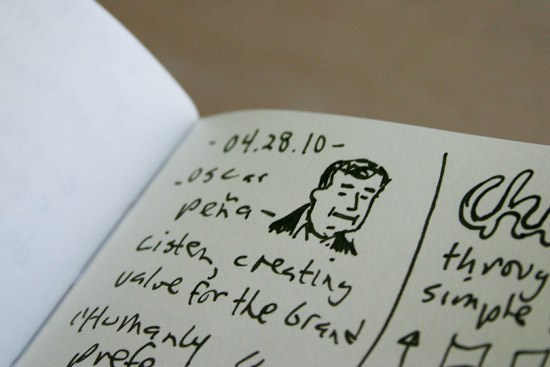 - 04.28.10 -
- oscar
peña -
Listen, creating
value for the brand
"Humanly
prefe
throug
simple